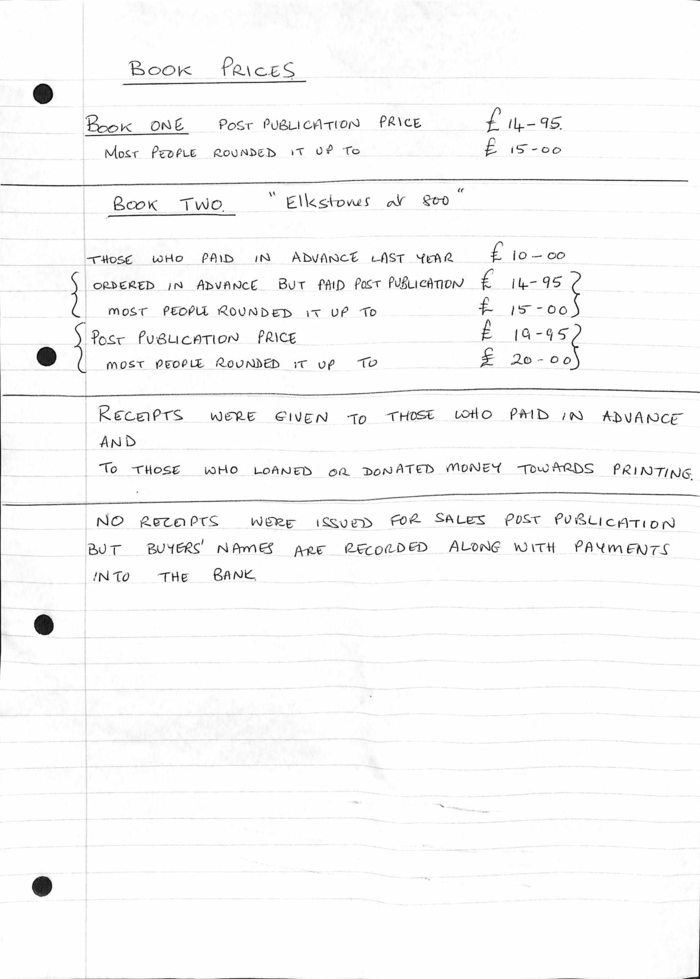 BOOK PRICES
BOOK ONE POST PUBLICATION PRICE £ 14-95.
MOST PEOPLE ROUNDED IT UP TO £ 15-00
BOOK TWO. "Elkstones at 800"
THOSE WHO PAID IN ADVANCE LAST YEAR £ 10-00
ORDERED IN ADVANCE BUT PAID POST PUBLICATION £ 14-95
MOST PEOPLE ROUNDED IT UP TO £ 15-00
POST PUBLICATION PRICE £ 19-95
MOST PEOPLE ROUNDED IT UP TO £ 20-00
RECEIPTS WERE GIVEN TO THOSE WHO PAID IN ADVANCE
AND
TO THOSE WHO LOANED OR DONATED MONEY TOWARDS PRINTING.
NO RECEIPTS WERE ISSUED FOR SALES POST PUBLICATION
BUT BUYERS' NAMES ARE RECORDED ALONG WITH PAYMENTS
INTO THE BANK